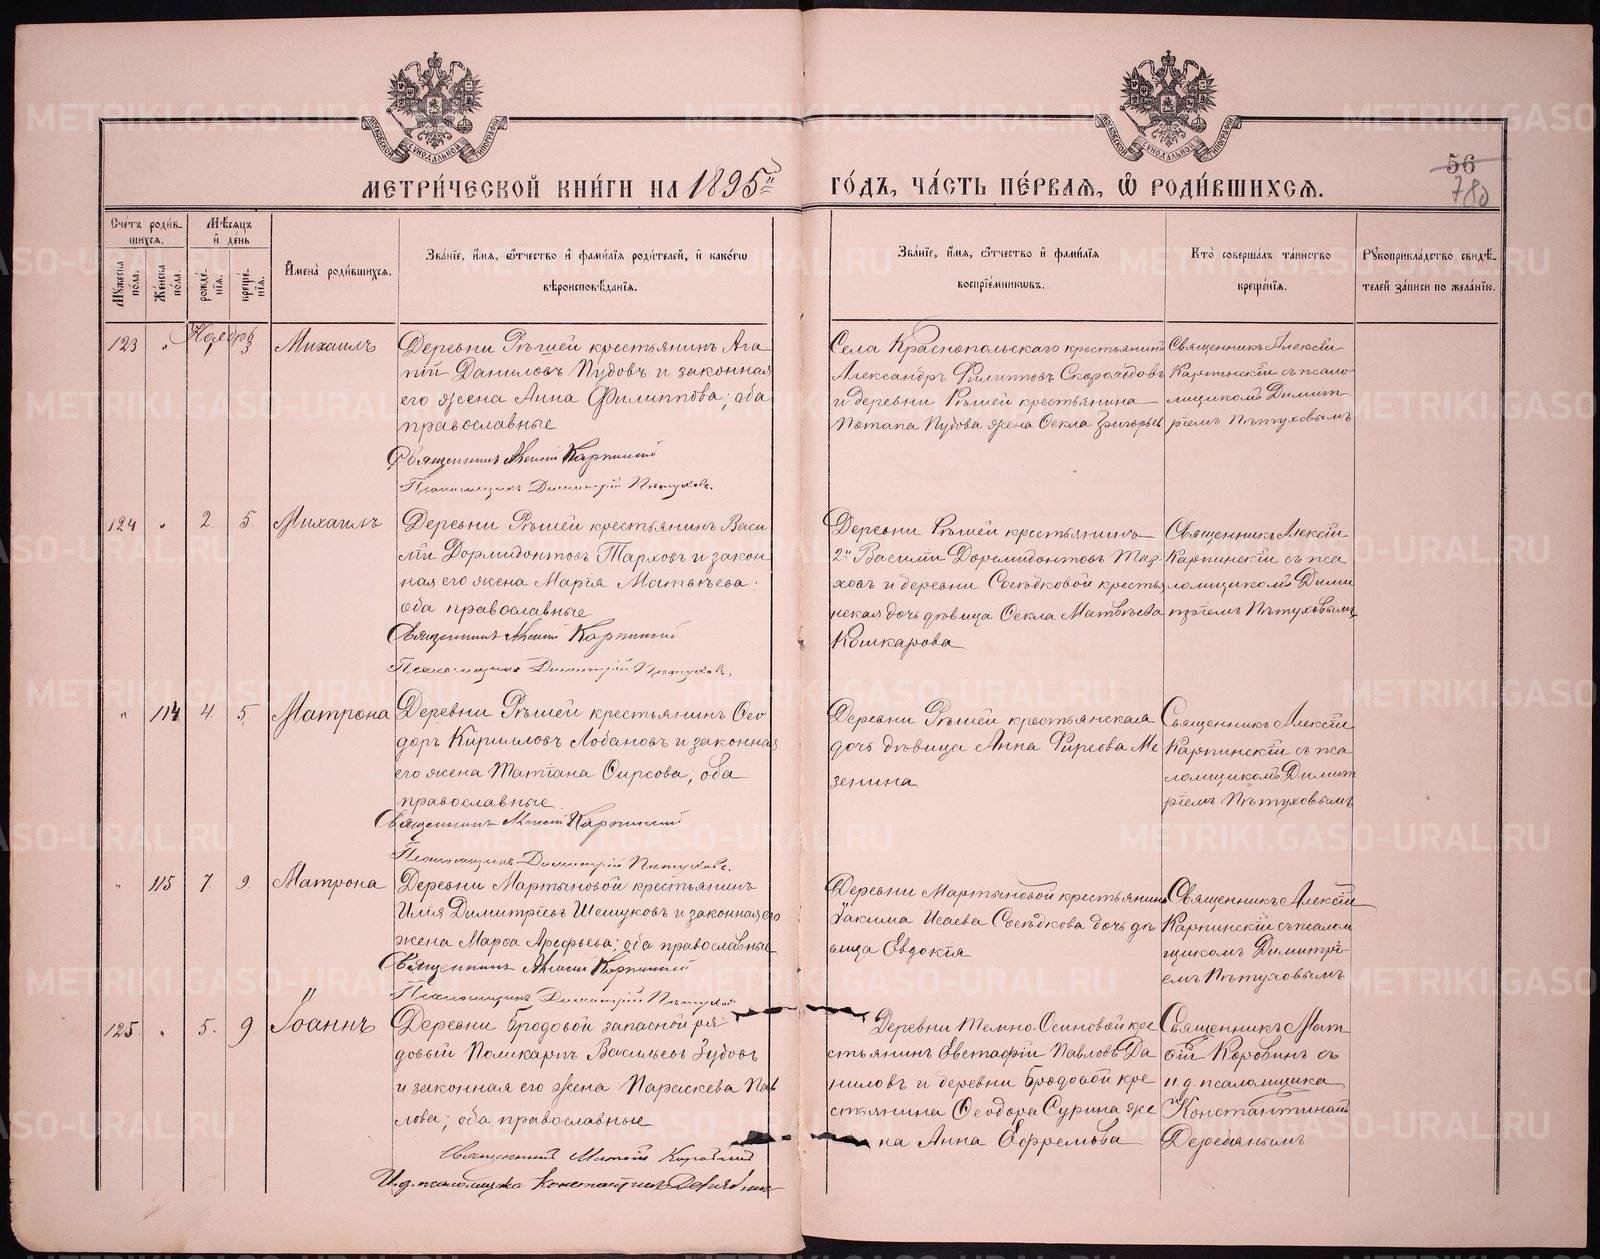 МОСКОВСКОЙ СѴНОДАЛЬНОЙ ТИПОГРАФІИ
МОСКОВСКОЙ СѴНОДАЛЬНОЙ ТИПОГРАФІИ
56
780
МЕТРИ́ЧЕСКОЙ КНИ́ГИ НА 1895й ГО́ДЪ, ЧА́СТЬ ПЕ́РВАЯ, Ѿ РОДИ́ВШИХСЯ.
Сче́тъ роди́в-
шихся.
Му́жеска по́ла.
Же́нска по́ла.
Мѣ́сяцъ
и҆ день
рожде́нїя.
креще́нїя.
И҆мена̀ роди́вшихся.
Зва́нїе, и҆́мя, ѻ҆́тчество и҆ фами́лїя роди́телей, и҆ како́гѡ
вѣроисповѣ́данїя.
Зва́нїе, и҆́мя, ѻ҆́тчество и҆ фами́лїя
воспрїе́мникѡвъ.
Кто̀ соверша́лъ та́инство
креще́нїя.
Рꙋкоприкла́дство свидѣ́-
телей за́писи по жела́нїю.
Ноябрь
123 „ 1 3 Михаилъ
Деревни Рѣшей крестьянинъ Ага
пій Даниловъ Пудовъ и законная
его жена Анна Филиппова; оба
православные
Священникъ Алексій Карпинскій
Псаломщикъ Димитрій Пѣтуховъ.
Села Краснопольскаго крестьянинъ
Александръ Филипповъ Скороходовъ
и деревни Рѣшей крестьянина
Потапа Пудова жена Ѳекла Григорьев
Священникъ Алексій
Карпинскій съ псало
мщикомъ Димит
ріемъ Пѣтуховымъ
124 „ 2. 5. Михаилъ
Деревни Рѣшей крестьянинъ Васи
лій Дормидонтовъ Тарховъ и закон
ная его жена Марія Матвѣева;
оба православные
Священникъ Алексій Карпинскій
Псаломщикъ Димитрій Пѣтуховъ.
Деревни Рѣшей крестьянинъ
2й Василій Доремидонтовъ Тар
ховъ и деревни Сосѣдковой крестья
нская дочь дѣвица Ѳекла Матвѣева
Кошкарова
Священникъ Алексій
Карпинскій съ пса
ломщикомъ Дими
тріемъ Пѣтуховымъ
„ 114 4. 5. Матрона
Деревни Рѣшей крестьянинъ Ѳео
доръ Кирилловъ Лобановъ и законная
его жена Татіана Ѳирсова; оба
православные
Священникъ Алексій Карпинскій
Псаломщикъ Димитрій Пѣтуховъ.
Деревни Рѣшей крестьянская
дочь дѣвица Анна Фирсова Ме
зенина
Священникъ Алексій
Карпинскій съ пса
ломщикомъ Димит
ріемъ Пѣтуховымъ
„ 115 7. 9. Матрона
Деревни Мартыновой крестьянинъ
Илія Димитріевъ Шешуковъ и законная его
жена Марѳа Арефьева; оба православные
Священникъ Алексій Карпинскій
Псаломщикъ Димитрій Пѣтуховъ
Деревни Мартыновой крестьянина
Іакима Исаева Сосѣдкова дочь дѣ
вица Евдокія
Священникъ Алексій
Карпинскій съ псалом
щикомъ Димитрі-
емъ Пѣтуховымъ
125. „ 5. 9. Іоаннъ
Деревни Бродовой запасной ря
довый Поликарпъ Васильевъ Зубовъ
и законная его жена Параскева Пав
лова; оба православные
Священникъ Матѳій Коровинъ
И.д. псаломщика Константинъ Деревянинъ
Деревни Темно-Осиновой кре
стьянинъ Евстафій Павловъ Да
ниловъ и деревни Бродовой кре
стьянина Ѳеодора Сурина же
на Анна Ефремова
Священникъ Мат
ѳій Коровинъ съ
и.д. псаломщика
Константиномъ
METRIKI.GASO-URAL.RU